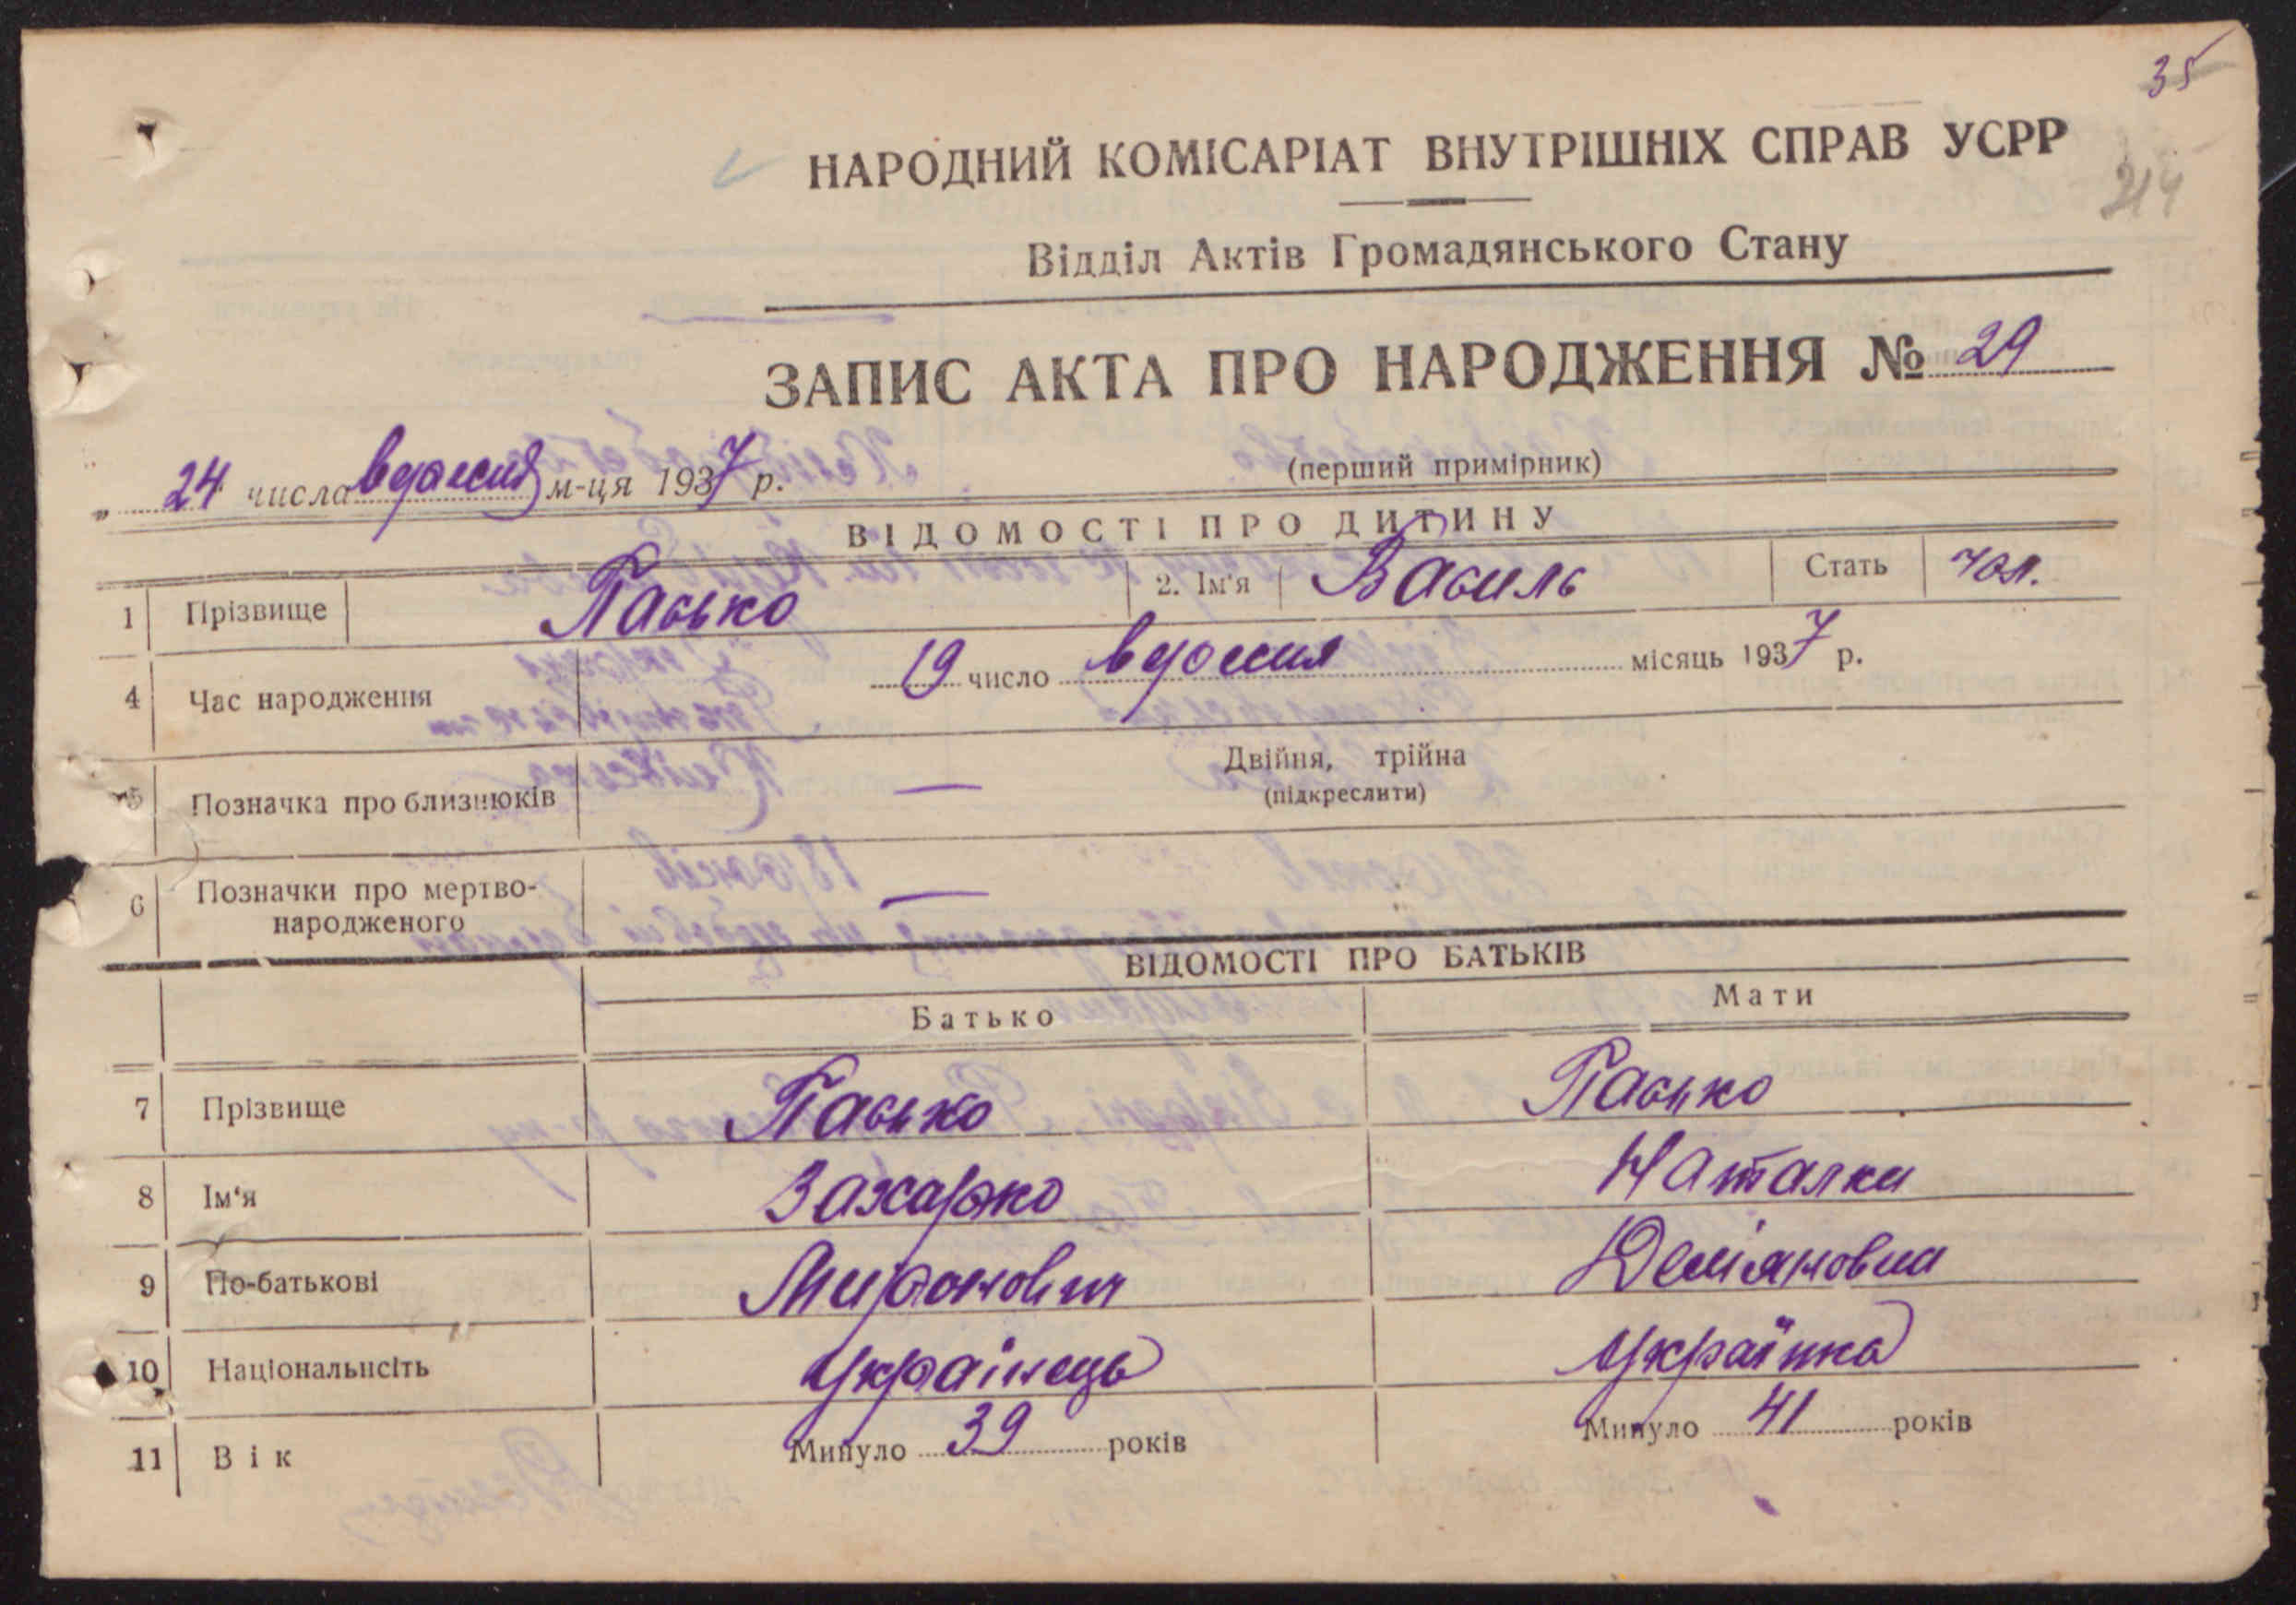 35
НАРОДНИЙ КОМІСАРІАТ ВНУТРІШНІХ СПРАВ УСРР
214
Відділ Актів Громадянського Стану
ЗАПИС АКТА ПРО НАРОДЖЕННЯ № 29
„ 24 числа вересня м-ця 1937 р.
(перший примірник)
ВІДОМОСТІ ПРО ДИТИНУ
1 Прізвище Пасько 2. Ім'я Василь Стать чол.
4 Час народження 19 число вересня місяць 1937 р.
5 Позначка про близнюків — Двійня, трійна
(підкреслити)
6 Позначки про мертво-
народженого —
ВІДОМОСТІ ПРО БАТЬКІВ
Батько Мати
7 Прізвище Пасько Пасько
8 Ім'я Захарко Наталки
9 По-батькові Миронович Деміяновна
10 Національнсіть Українець Українка
11 Вік Минуло 39 років Минуло 41 років